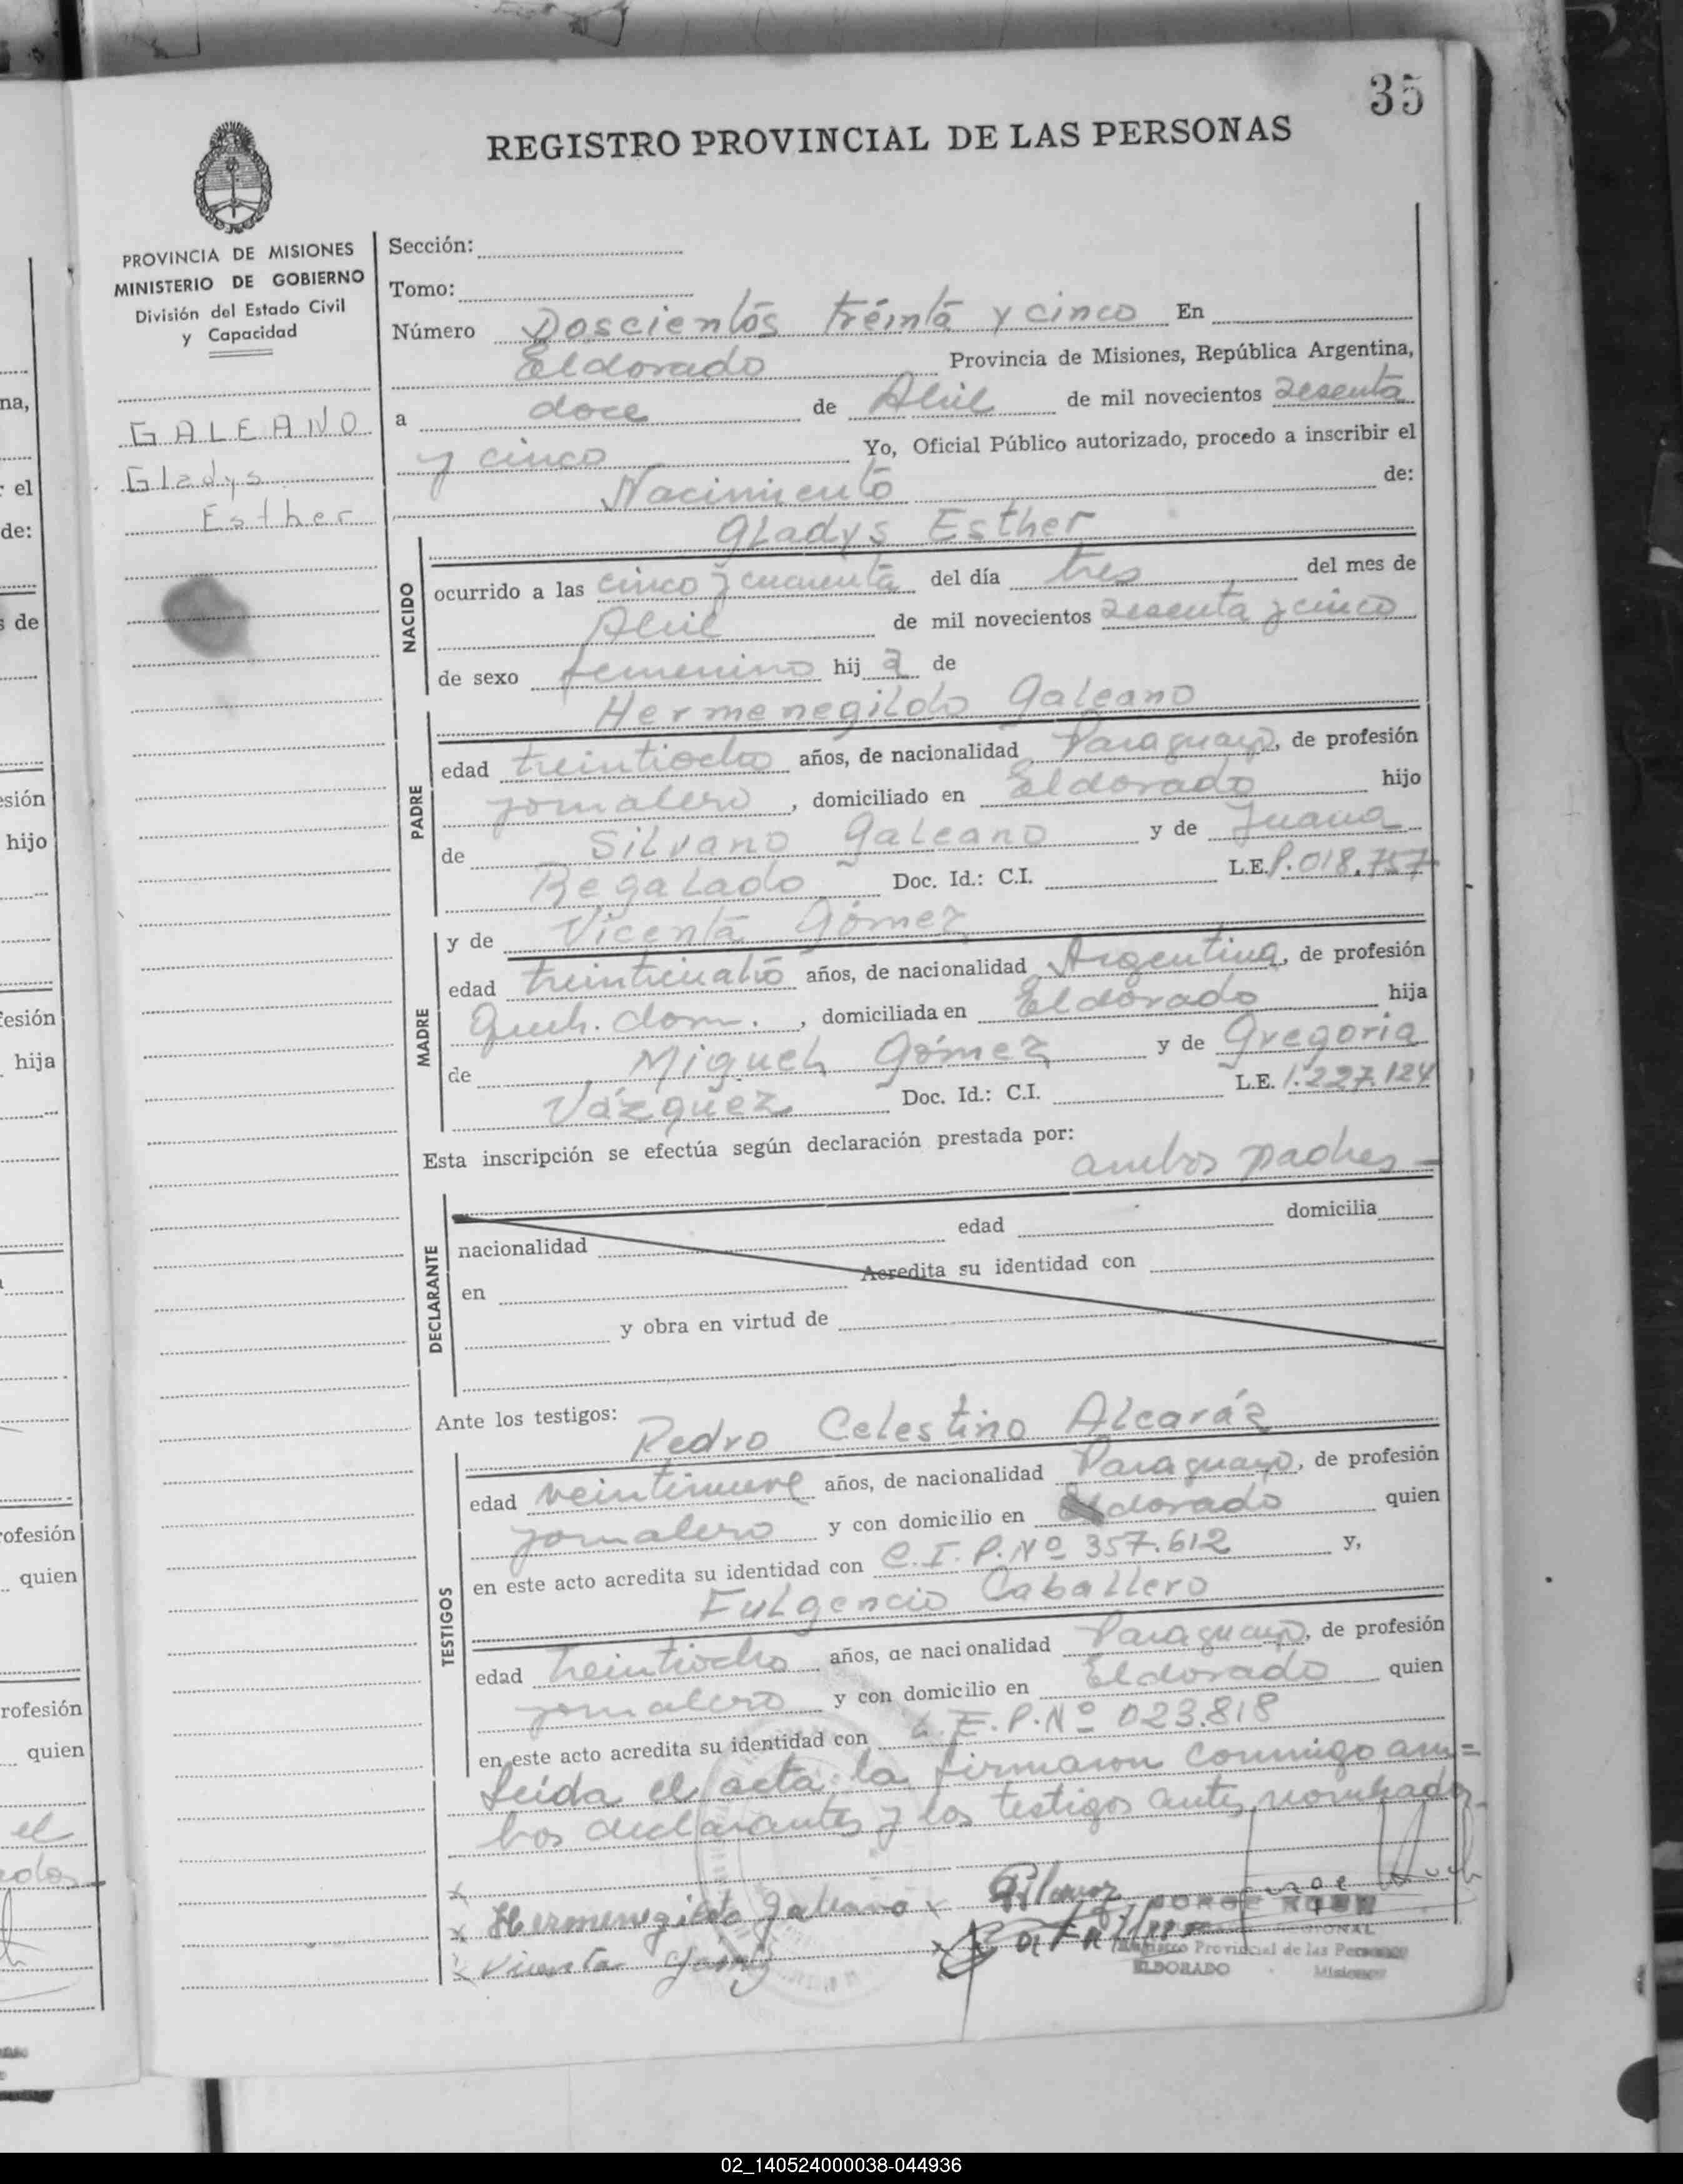 35
REGISTRO PROVINCIAL DE LAS PERSONAS
PROVINCIA DE MISIONES
MINISTERIO DE GOBIERNO
División del Estado Civil
y Capacidad
GALEANO
Gladys
Esther
Sección:
Tomo:
Número Doscientos treinta y cinco En
Eldorado Provincia de Misiones, República Argentina,
a doce de Abril de mil novecientos sesenta
y cinco Yo, Oficial Público autorizado, procedo a inscribir el
Nacimiento de:
Gladys Esther
NACIDO
ocurrido a las cinco y cuarenta del día tres del mes de
Abril de mil novecientos sesenta y cinco
de sexo femenino hij a de
Hermenegildo Galeano
PADRE
edad treintiocho años, de nacionalidad Paraguayo, de profesión
jornalero, domiciliado en Eldorado hijo
de Silvano Galeano y de Juana
Regalado Doc. Id.: C.I. L.E. P. 018.757
y de Vicenta Gómez
MADRE
edad treinticuatro años, de nacionalidad Argentina, de profesión
Queh. dom., domiciliada en Eldorado hija
de Miguel Gómez y de Gregoria
Vázquez Doc. Id.: C.I. L.E. 1.227.124
Esta inscripción se efectúa según declaración prestada por:
ambos padres -
DECLARANTE
nacionalidad edad domicilia
en Acredita su identidad con
y obra en virtud de
Ante los testigos: Pedro Celestino Alcaráz
TESTIGOS
edad veintinueve años, de nacionalidad Paraguayo, de profesión
jornalero y con domicilio en Eldorado quien
en este acto acredita su identidad con C.I.P. Nº 357.612 y,
Fulgencio Caballero
edad treintiocho años, de nacionalidad Paraguayo, de profesión
jornalero y con domicilio en Eldorado quien
en este acto acredita su identidad con L.E.P. Nº 023.818
Leida el acta la firmaron conmigo am=
bos declarantes y los testigos antes nombrados-
x Hermenegildo Galeano x
x Vicenta
JORGE
Registro Provincial de las Personas
ELDORADO Misiones
na,
el
de:
de
esión
hijo
fesión
hija
rofesión
quien
rofesión
quien
el
02_140524000038-044936